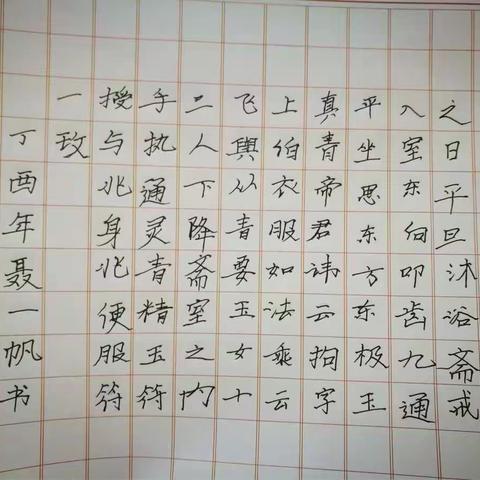 之日平旦沐浴斋戒
入室东向叩齿九通
平坐思东方东极玉
真青帝君讳云拘字
上伯衣服如法乘云
飞興从青要玉女十
二人下降斋室之内
手执通灵青精玉符
授与兆身兆便服符
一玫
丁酉年聂一帆书